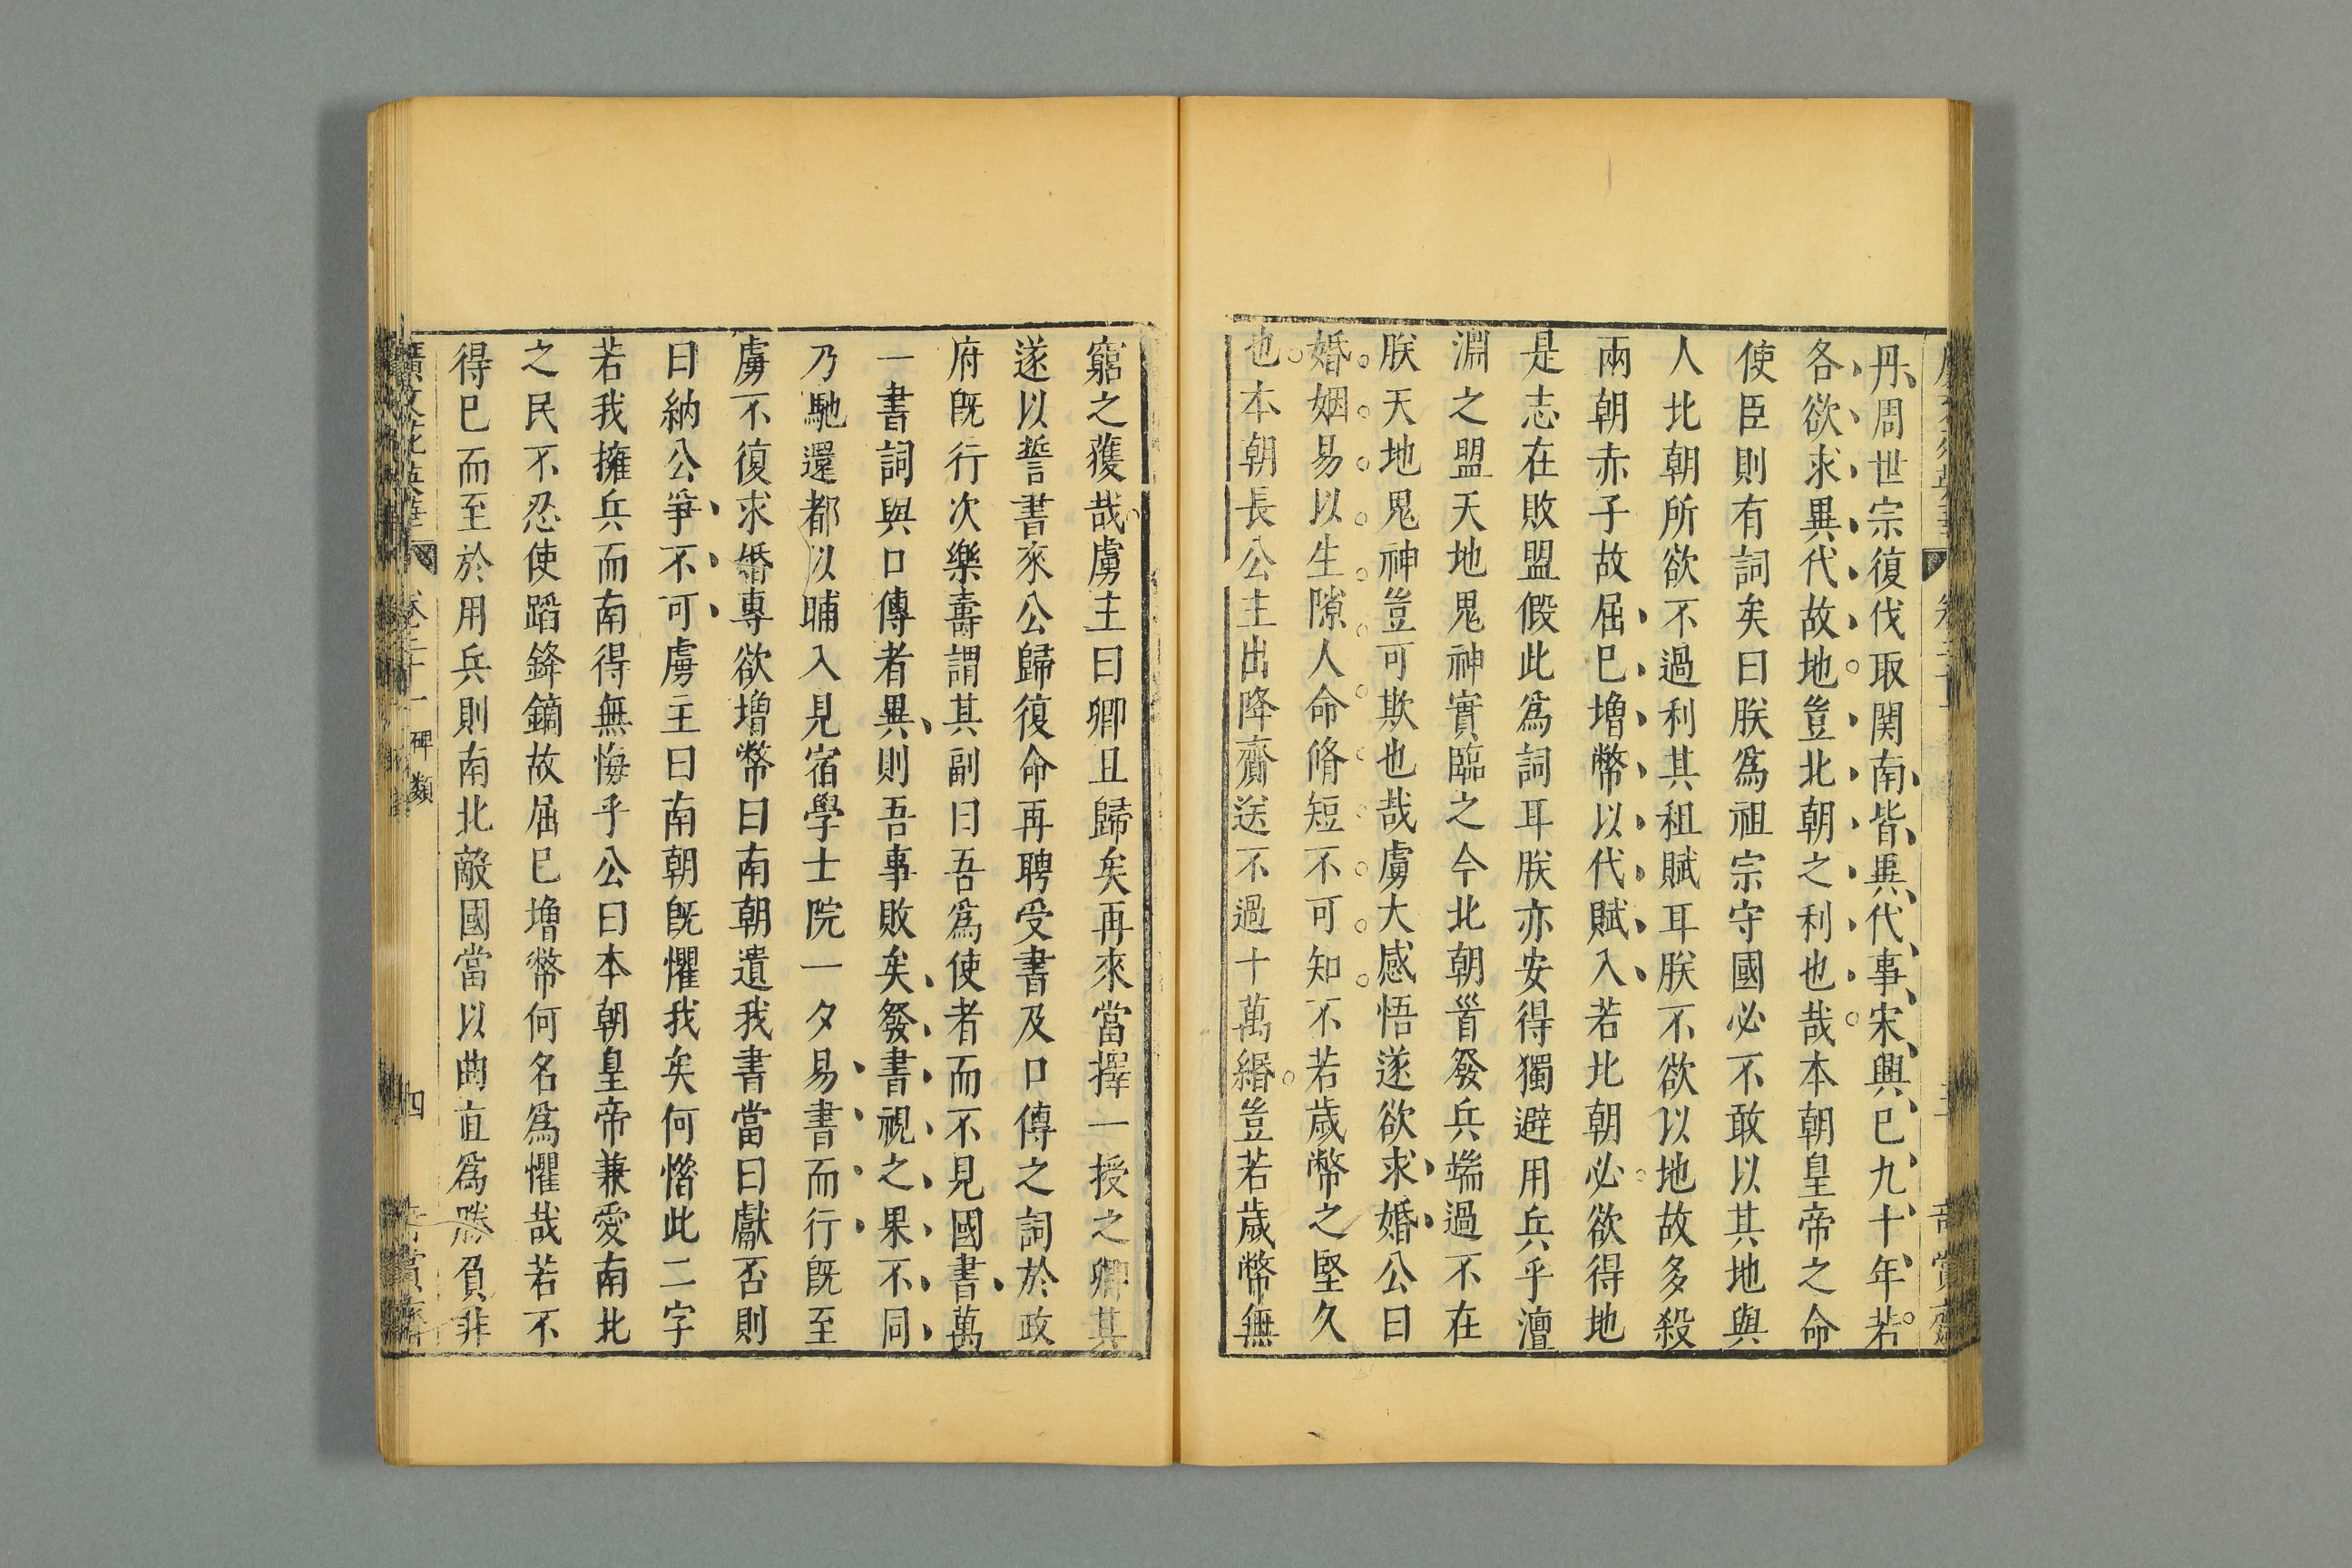 丹周世宗復伐取関南皆異代事宋興已九十年若
各欲求異代故地豈北朝之利也哉本朝皇帝之命
使臣則有詞矣曰朕爲祖宗守國必不敢以其地與
人北朝所欲不過利其租賦耳朕不欲以地故多殺
兩朝赤子故屈已增幣以代賦入若北朝必欲得地
是志在敗盟假此爲詞耳朕亦安得獨避用兵乎澶
淵之盟天地鬼神實臨之今北朝首發兵端過不在
朕天地鬼神豈可欺也哉虜大感悟遂欲求婚公曰
婚姻易以生隙人命脩短不可知不若歲幣之堅久
也本朝長公主出降齎送不過十萬緡豈若歲幣無
窮之獲哉虜主曰卿且歸矣再來當擇一授之卿其
遂以誓書來公歸復命再聘受書及口傳之詞於政
府旣行次樂壽謂其副曰吾爲使者而不見國書萬
一書詞與口傳者異則吾事敗矣發書視之果不同
乃馳還都以晡入見宿學士院一夕易書而行旣至
虜不復求婚專欲增幣曰南朝遺我書當曰獻否則
曰納公爭不可虜主曰南朝旣懼我矣何惜此二字
若我擁兵而南得無悔乎公曰本朝皇帝兼愛南北
之民不忍使蹈鋒鏑故屈已增幣何名爲懼哉若不
得已而至於用兵則南北敵國當以曲直爲勝負非
廣文苑英華 卷二十一 碑類 四 奇賞齋